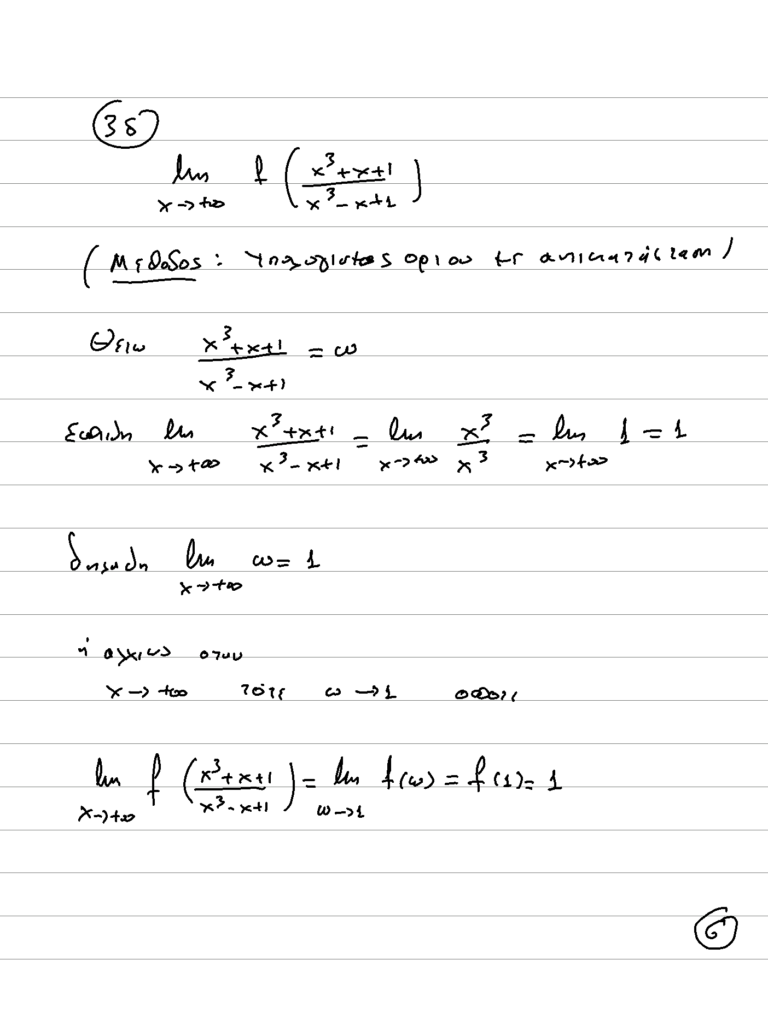 38
lim x→+∞ f ( (x³+x+1) / (x³-x+1) )
( Μεθοδος : Υπολογισμος οριου με αντικατάσταση )
Θετω (x³+x+1) / (x³-x+1) = ω
lim x→+∞ (x³+x+1) / (x³-x+1) = lim x→+∞ x³ / x³ = lim x→+∞ 1 = 1
δηλαδη lim x→+∞ ω = 1
ή αλλιως οταν
x→+∞ τότε ω→1 οποτε
lim x→+∞ f ( (x³+x+1) / (x³-x+1) ) = lim ω→1 f(ω) = f(1) = 1
6